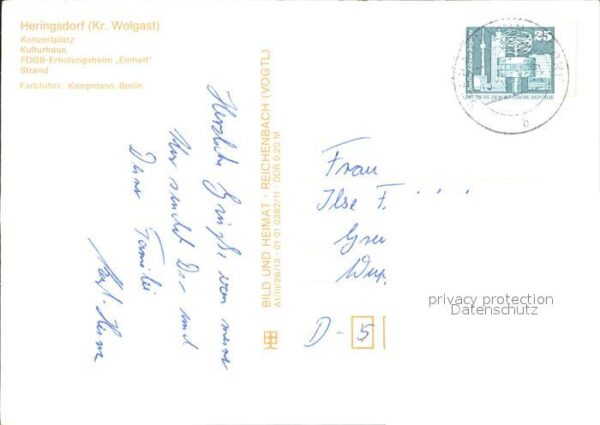 Heringsdorf (Kr. Wolgast)
Konzertplatz
Kulturhaus
FDGB-Erholungsheim „Einheit"
Strand
Farbfotos: Kampmann, Berlin
BILD UND HEIMAT · REICHENBACH (VOGTL)
A1/III/26/13 · 01 01 0382/11 · DDR 0,20 M
25
DEUTSCHE DEMOKRATISCHE REPUBLIK
b
Herzliche Grüße von meiner
Kur sendet Dir und
Deiner Familie
Frau
Ilse F.
Wup
D-5
privacy protection
Datenschutz